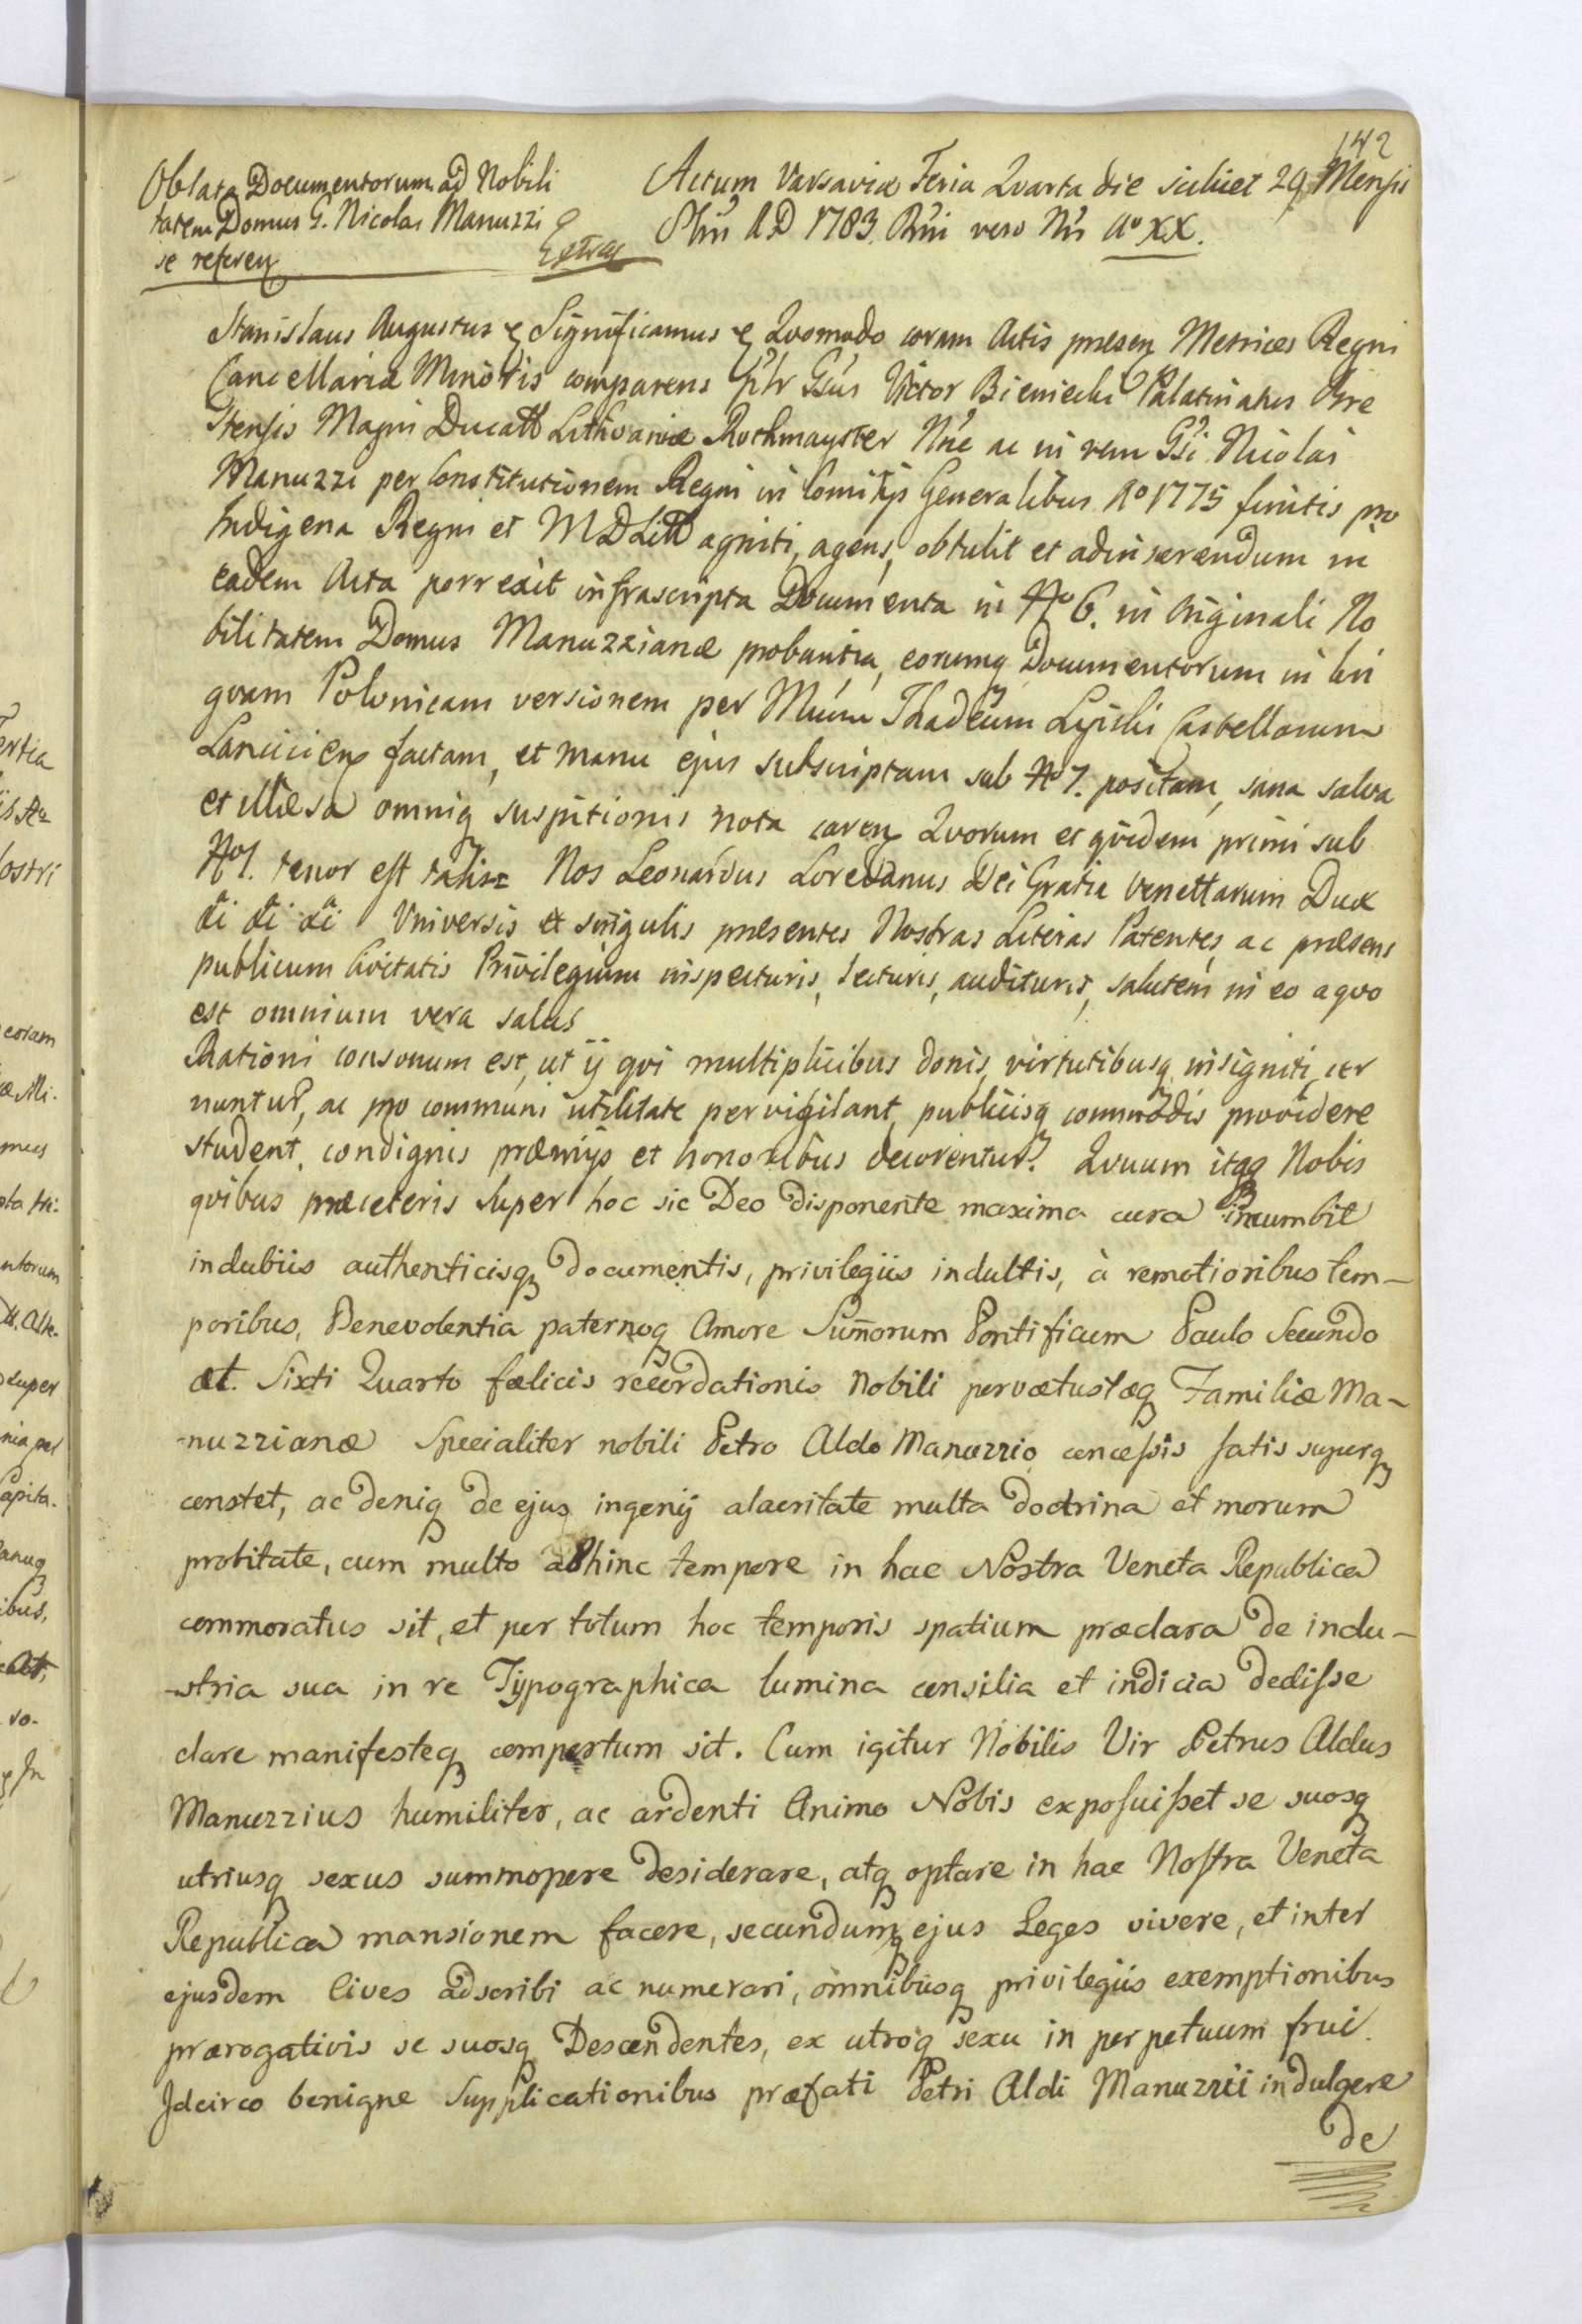 142
Oblata Documentorum ad Nobili
tatem Domus G. Nicolai Manuzzi
se referen
Extrad
Actum Varsaviæ Feria Quarta die scilicet 29 Mensis
8bris AD 1783. Rni vero Nri Ao XX.
Stanislaus Augustus & Significamus & Quomodo coram Actis præsen Metrices Regni
Cancellariæ Minoris comparens plr Gsus Victor Bieniecki Palatinatus Bre
stensis Magni Ducatt Lithvaniæ Rothmayster Nne ac in rem Gsi Nicolai
Manuzzi per Constitutionem Regni in Comitijs Generalibus Ao 1775 finitis pro
Indigena Regni et MDLitt agniti, agens, obtulit et ad inserendum in
eadem Acta porrexit infrascripta Documenta in No 6. in Originali No
bilitatem Domus Manuzzianæ probantia, eorumq Documentorum in lin
gvam Polonicam versionem per Mum Thadeum Lipski Castellanum
Lancicien factam, et manu ejus subscriptam sub No 7. positam, sana salva
et illæsa omniq suspitionis nota caren Quorum et qvidem primi sub
No 1. tenor est talis: Nos Leonardus Loredanus Dei Gratia Venettarum Dux
&c &c &c Universis et singulis præsentes Nostras Literas Patentes, ac præsens
publicum Civitatis Privilegium inspecturis, lecturis, audituris, salutem in eo a qvo
est omnium vera salus
Rationi consonum est, ut ij qvi multiplicibus donis, virtutibusq insigniti cer
nuntur, ac pro communi utilitate pervigilant, publicisq commodis providere
student, condignis præmijs et honoribus decorentur. Qvuum itaq Nobis
qvibus præ ceteris super hoc sic Deo disponente maxima cura incumbit
indubiis authenticisq documentis, privilegiis indultis, à remotioribus tem-
poribus, Benevolentia paternoq Amore Sum̄orum Pontificum Paulo Secundo
æt. Sixti Quarto fælicis recordationis Nobili pervætustæq Familiæ Ma-
-nuzzianæ Specialiter nobili Petro Aldo Manuzzio concessis satis superq
constet, ac deniq de ejus ingenij alacritate multa doctrina et morum
probitate, cum multo abhinc tempore in hac Nostra Veneta Republica
commoratus sit, et per totum hoc temporis spatium præclara de indu-
-stria sua in re Typographica lumina consilia et indicia dedisse
clare manifesteq compertum sit. Cum igitur Nobilis Vir Petrus Aldus
Manuzzius humiliter, ac ardenti Animo Nobis exposuisset se suosq
utriusq sexus summopere desiderare, atq optare in hac Nostra Veneta
Republica mansionem facere, secundumq ejus Leges vivere, et inter
ejusdem Cives adscribi ac numerari, omnibusq privilegiis exemptionibus
prærogativis se suosq Descendentes, ex utroq sexu in perpetuum frui.
Idcirco benigne Supplicationibus præfati Petri Aldi Manuzzii indulgere
de